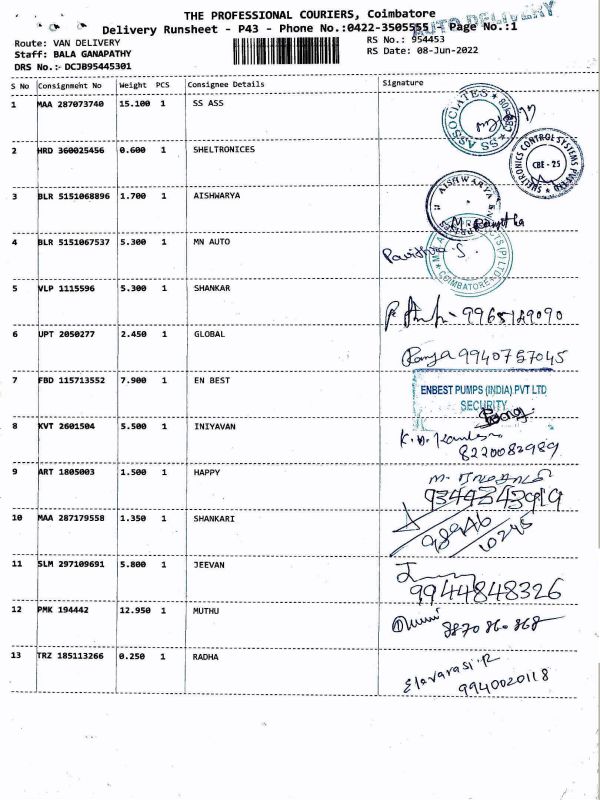 THE PROFESSIONAL COURIERS, Coimbatore
AUTO DELIVERY
Delivery Runsheet - P43 - Phone No.:0422-3505555 - Page No.:1
Route: VAN DELIVERY
RS No.: 954453
Staff: BALA GANAPATHY
RS Date: 08-Jun-2022
DRS No.:- DCJB95445301
S No Consignment No Weight PCS Consignee Details Signature
1 MAA 287073740 15.100 1 SS ASS
SS ASSOCIATES
2 HRD 360025456 0.600 1 SHELTRONICES
SHELTRONICS CONTROL SYSTEMS PVT LTD
CBE - 25
3 BLR 5151068896 1.700 1 AISHWARYA
AISHWARYA
M. Ranjitha
4 BLR 5151067537 5.300 1 MN AUTO
Pavithra S.
(P) LTD
COIMBATORE
5 VLP 1115596 5.300 1 SHANKAR
9965129090
6 UPT 2050277 2.450 1 GLOBAL
Ramya 9940757045
7 FBD 115713552 7.900 1 EN BEST
ENBEST PUMPS (INDIA) PVT LTD
SECURITY
8 KVT 2601504 5.500 1 INIYAVAN
8220082989
9 ART 1805003 1.500 1 HAPPY
10 MAA 287179558 1.350 1 SHANKARI
98946
10245
11 SLM 297109691 5.800 1 JEEVAN
9944848326
12 PMK 194442 12.950 1 MUTHU
13 TRZ 185113266 0.250 1 RADHA
Elavarasi.R
9940020118